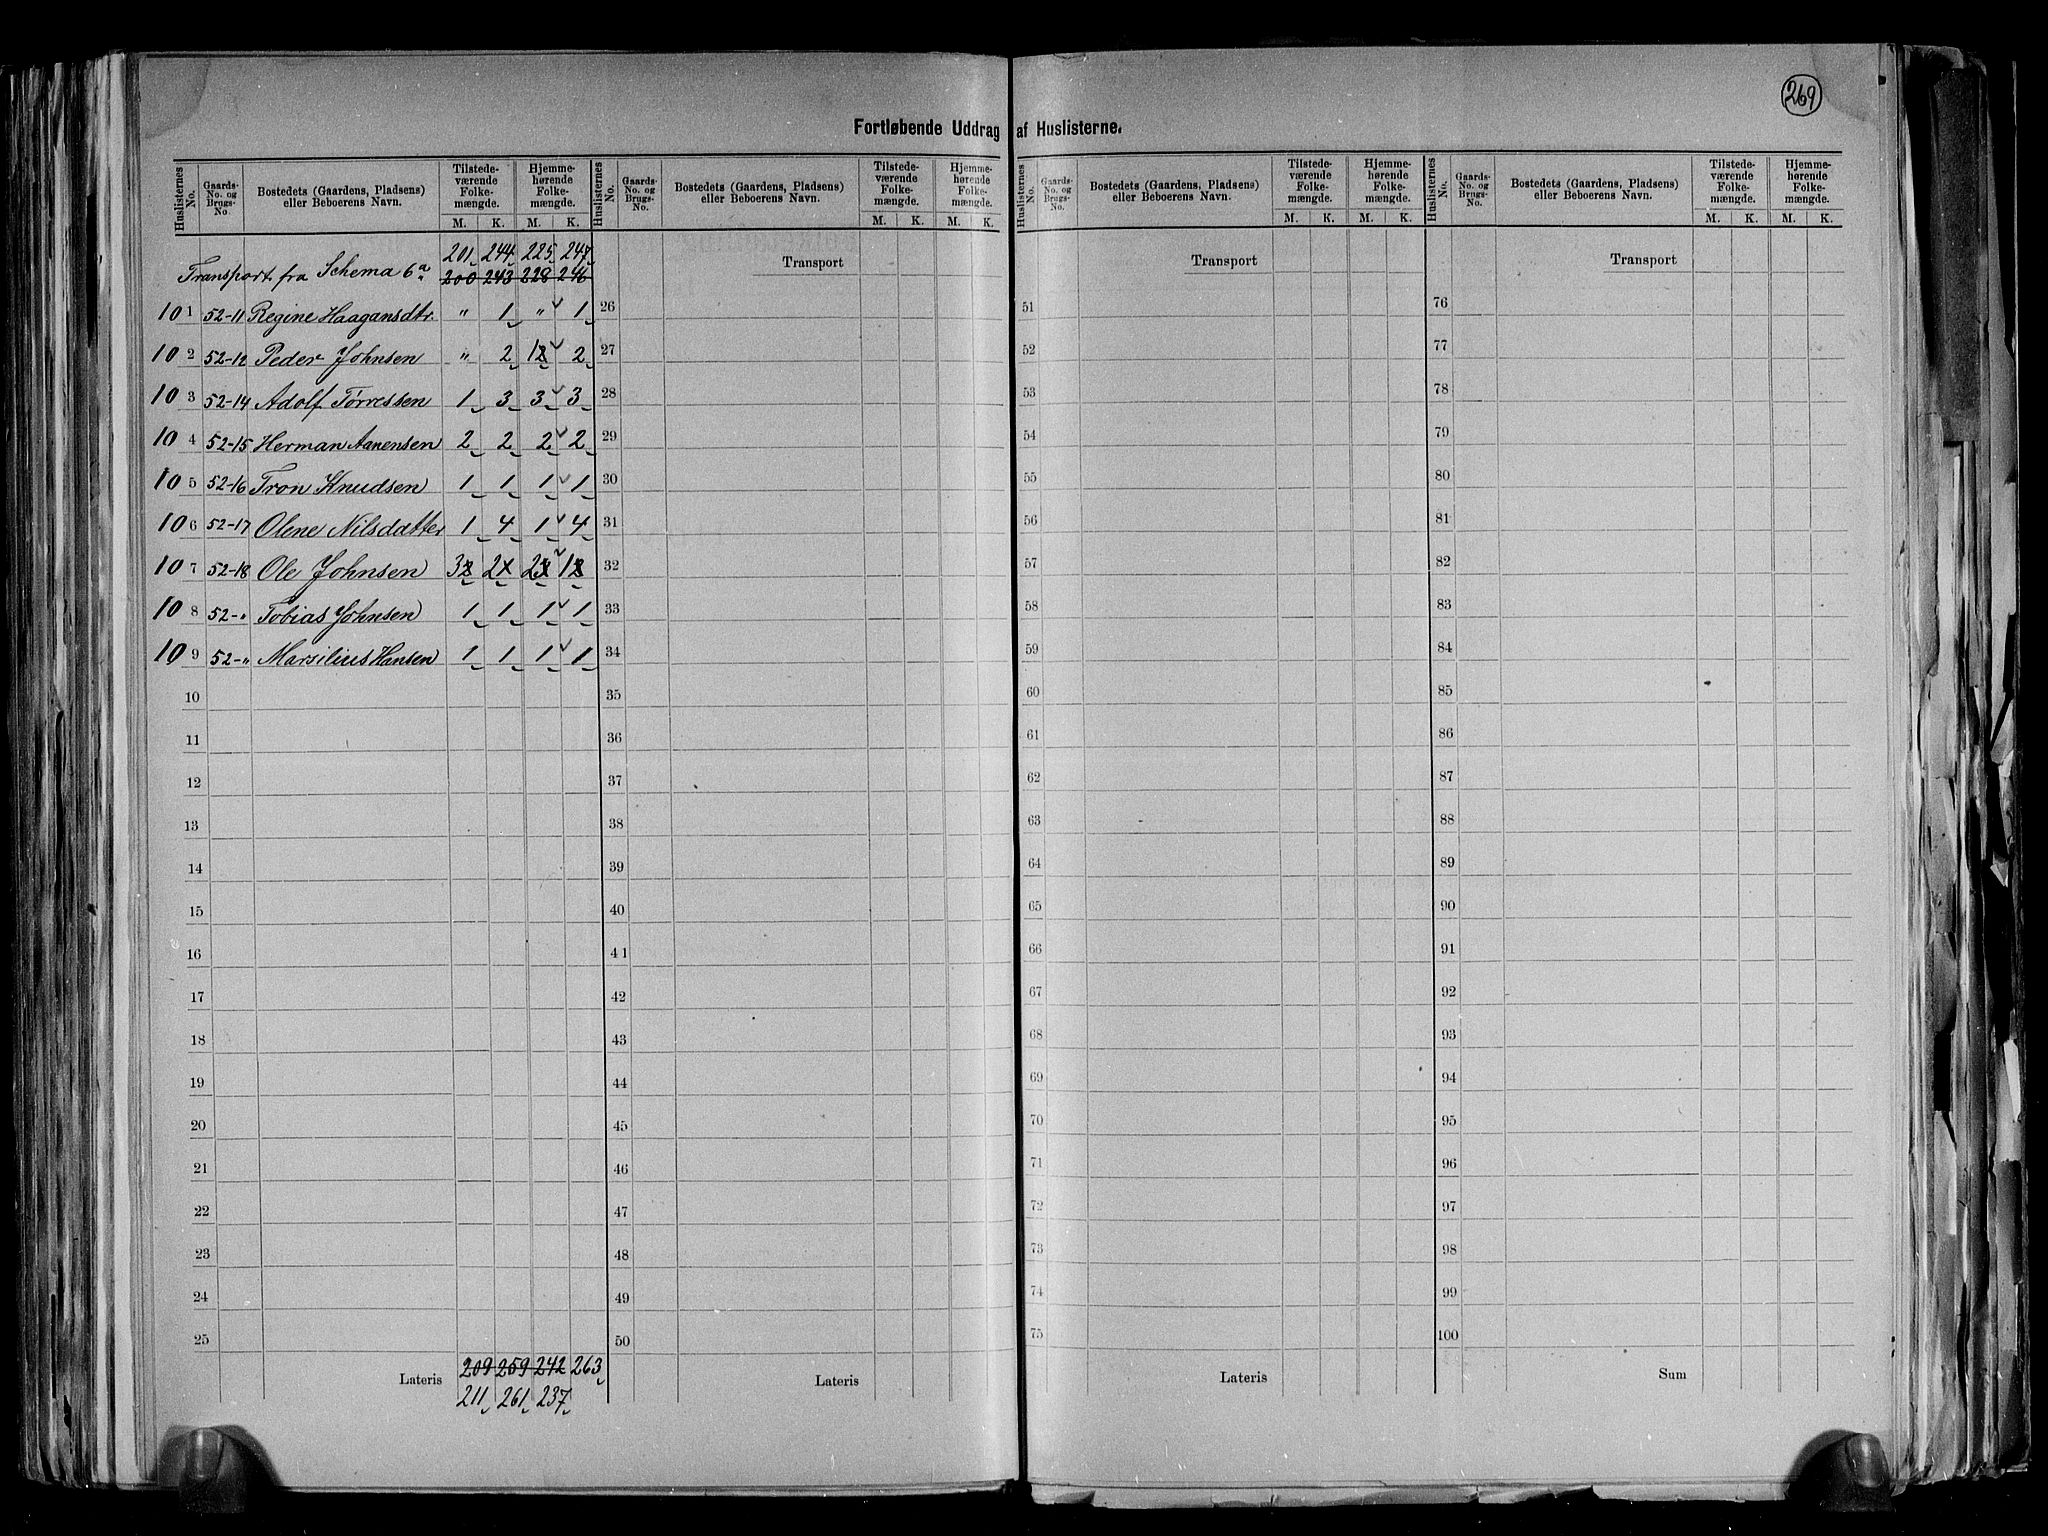 269
Fortløbende Uddrag af Huslisterne.
Huslisternes No. Gaards-No. og Brugs-No Bostedets (Gaardens, Pladsens) eller Beboerens Navn. Tilstedeværende Folkemængde. Hjemmehørende Folkemængde.
M. K. M. K.
Huslisternes No. Gaards-No. og Brugs-No. Bostedets (Gaardens, Pladsens) eller Beboerens Navn. Tilstedeværende Folkemængde. Hjemmehørende Folkemængde.
M. K. M. K.
Huslisternes No. Gaards-No. og Brugs-No. Bostedets (Gaardens, Pladsens) eller Beboerens Navn. Tilstedeværende Folkemængde. Hjemmehørende Folkemængde.
M. K. M. K.
Huslisternes No. Gaards-No. og Brugs-No. Bostedets (Gaardens, Pladsens) eller Beboerens Navn. Tilstedeværende Folkemængde. Hjemmehørende Folkemængde.
M. K. M. K.
201 244 225 247
Transport fra Schema 6a 200 243 228 246
10 1 52-11 Regine Haagansdtr. " 1 " 1
10 2 52-12 Peder Johnsen " 2 1 2
10 3 52-14 Adolf Tørressen 1 3 3 3
10 4 52-15 Herman Aanensen 2 2 2 2
10 5 52-16 Tron Knudsen 1 1 1 1
10 6 52-17 Olene Nilsdatter 1 4 1 4
10 7 52-18 Ole Johnsen 3 2 2 1
10 8 52-" Tobias Johnsen 1 1 1 1
10 9 52-" Marsilius Hansen 1 1 1 1
10
11
12
13
14
15
16
17
18
19
20
21
22
23
24
25
Lateris 209 259 242 263
211 261 237
Transport
26
27
28
29
30
31
32
33
34
35
36
37
38
39
40
41
42
43
44
45
46
47
48
49
50
Lateris
Transport
51
52
53
54
55
56
57
58
59
60
61
62
63
64
65
66
67
68
69
70
71
72
73
74
75
Lateris
Transport
76
77
78
79
80
81
82
83
84
85
86
87
88
89
90
91
92
93
94
95
96
97
98
99
100
Sum